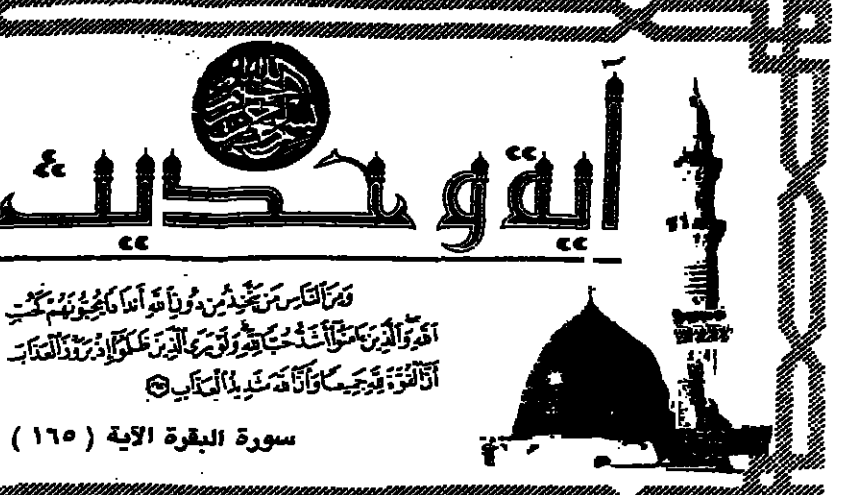 آية وحديث
وَمِنَ ٱلنَّاسِ مَن يَتَّخِذُ مِن دُونِ ٱللَّهِ أَندَادًا يُحِبُّونَهُمْ كَحُبِّ
ٱللَّهِ وَٱلَّذِينَ ءَامَنُوٓا۟ أَشَدُّ حُبًّا لِّلَّهِ وَلَوْ يَرَى ٱلَّذِينَ ظَلَمُوٓا۟ إِذْ يَرَوْنَ ٱلْعَذَابَ
أَنَّ ٱلْقُوَّةَ لِلَّهِ جَمِيعًا وَأَنَّ ٱللَّهَ شَدِيدُ ٱلْعَذَابِ ١٦٥
سورة البقرة الآية ( ١٦٥ )